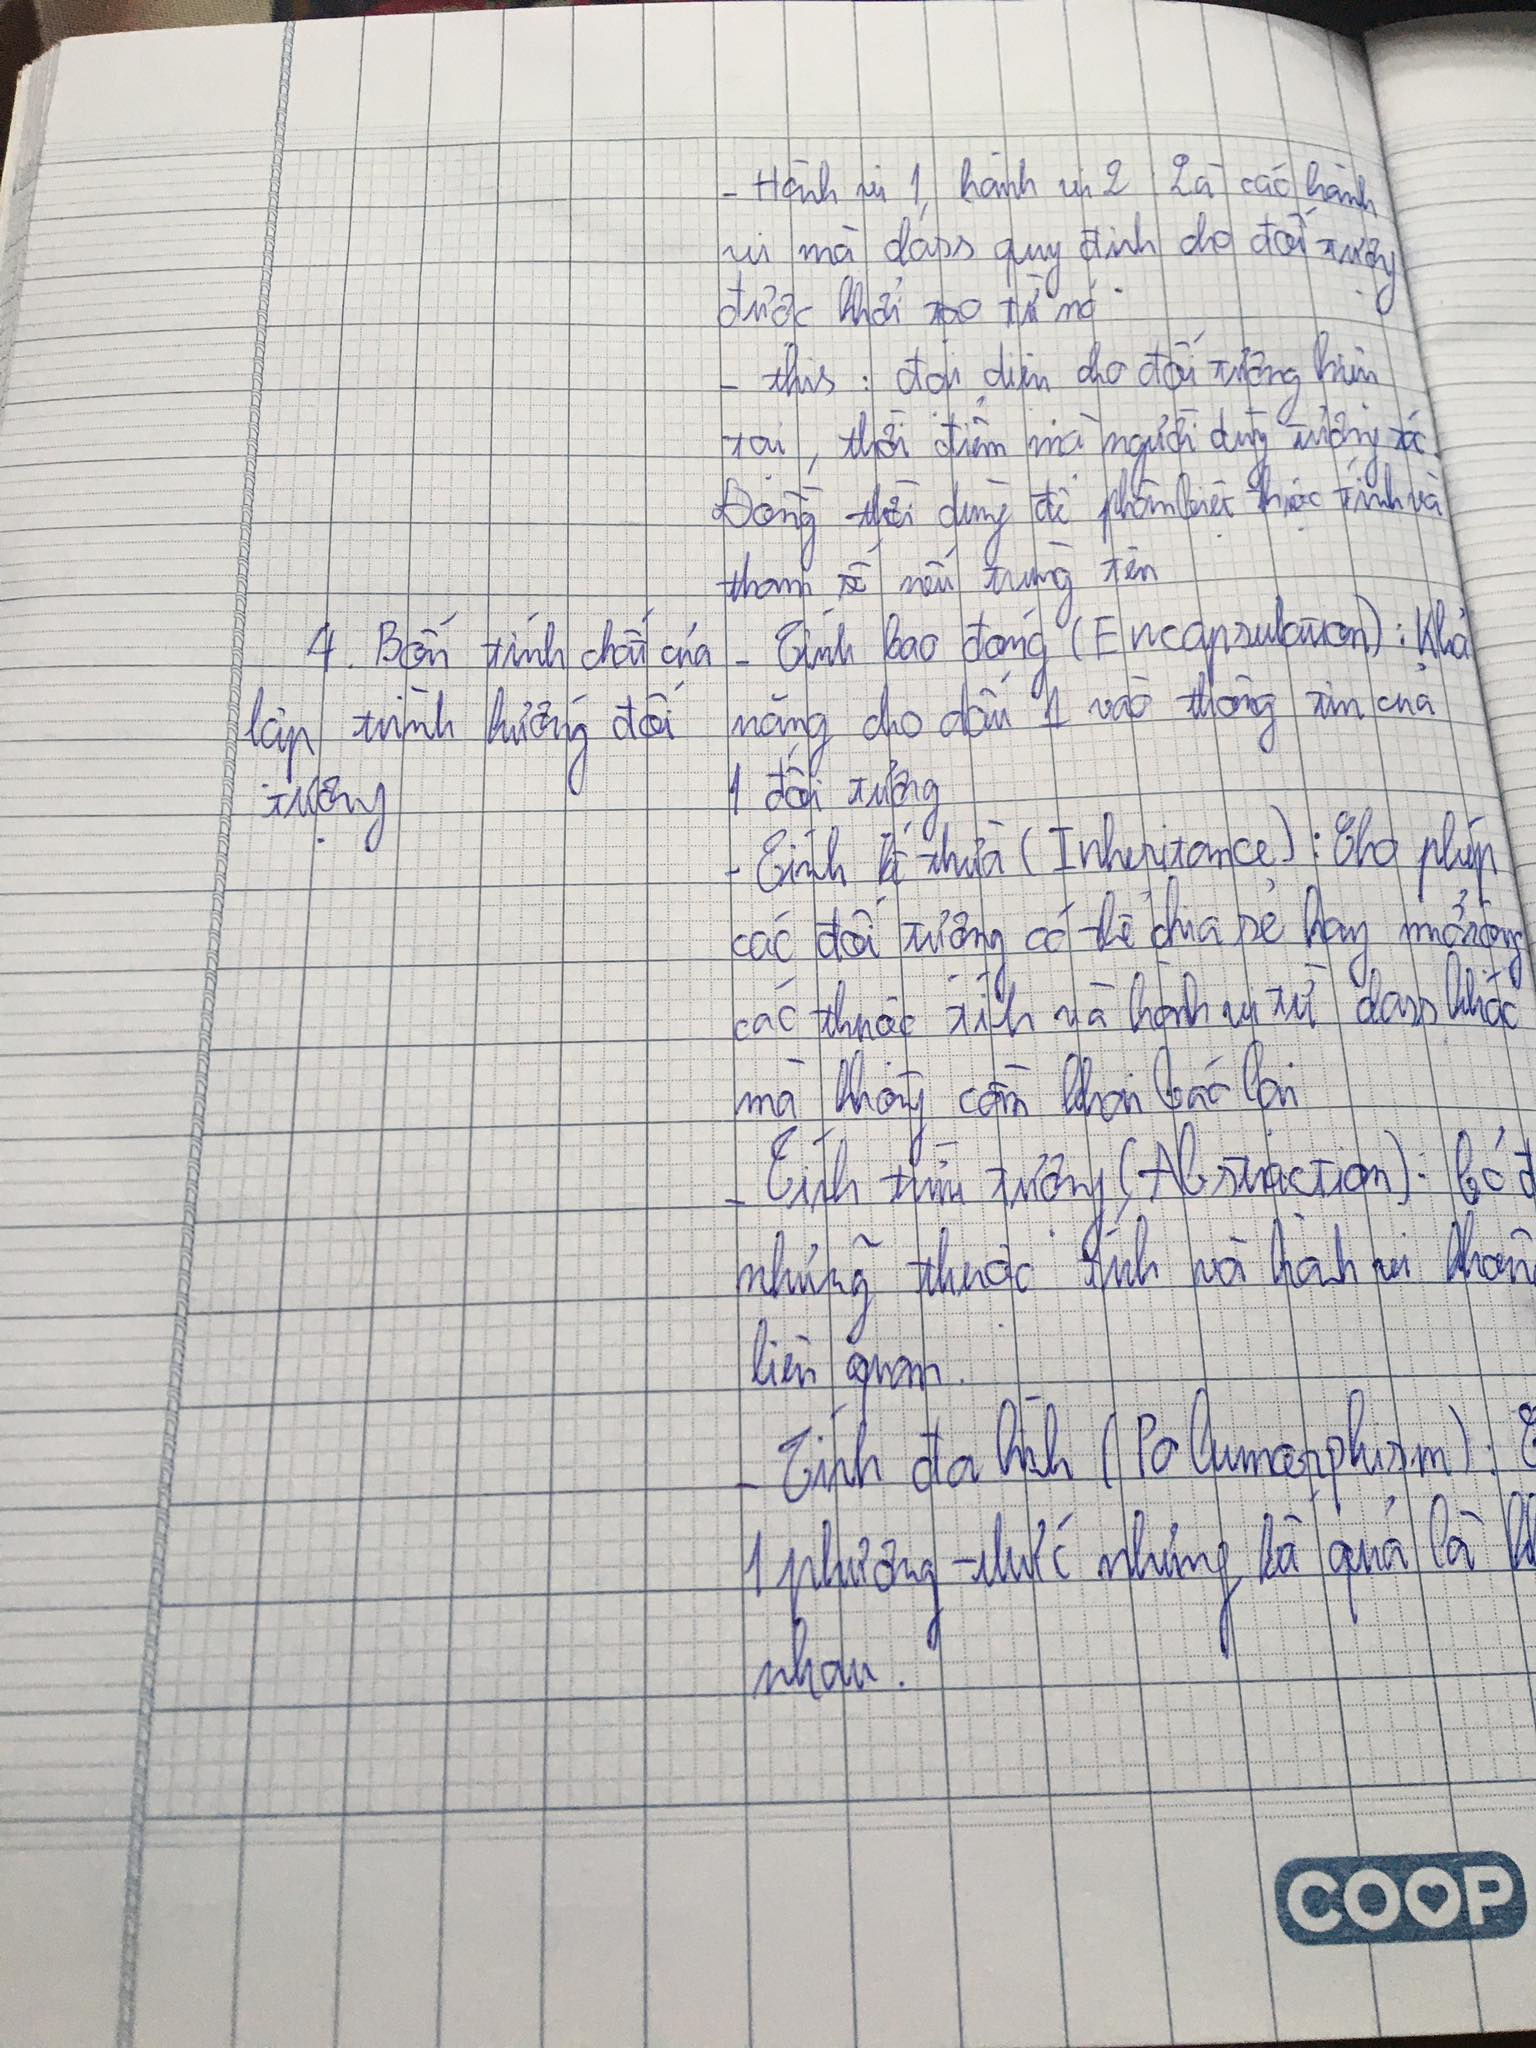 - Hành vi 1, hành vi 2 : Là các hành
vi mà class quy định cho đối tượng
được khởi tạo từ nó
- this : đại diện cho đối tượng hiện
tại, thời điểm mà người dùng tương tác.
Đồng thời dùng để phân biệt thuộc tính và
tham số nếu trùng tên
4. Bốn tính chất của
lập trình hướng đối
tượng
- Tính bao đóng (Encapsulation) : Khả
năng che dấu 1 vào thông tin của
1 đối tượng
- Tính kế thừa (Inheritance) : Cho phép
các đối tượng có thể chia sẻ hay mở rộng
các thuộc tính và hành vi từ class khác
mà không cần khai báo lại
- Tính trừu tượng (Abstraction) : bỏ đ
những thuộc tính và hành vi không
liên quan.
- Tính đa hình (Polumorphism) :
1 phương thức nhưng kết quả là kh
nhau.
COOP